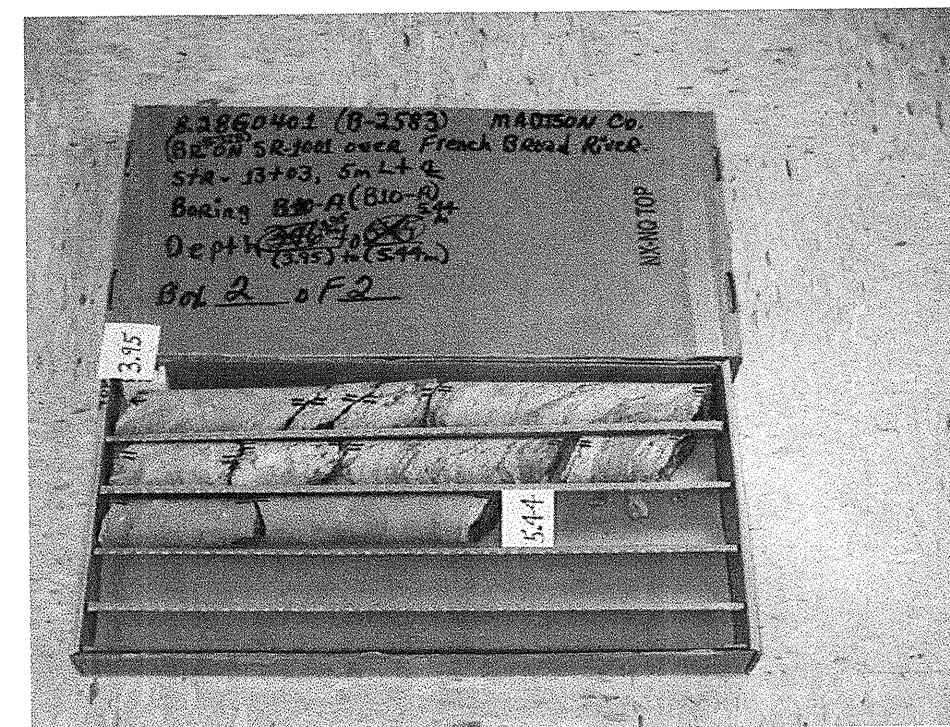 8.2860401 (B-2583) MADISON Co.
(BR ON SR-1001 over French Broad River
STA- 13+03, 5m Lt ℄
Boring B10-A (B10-A)
5.44
m
Depth to
(3.95) to (5.44m)
Box 2 oF 2
NX-NQ TOP
3.95
5.44